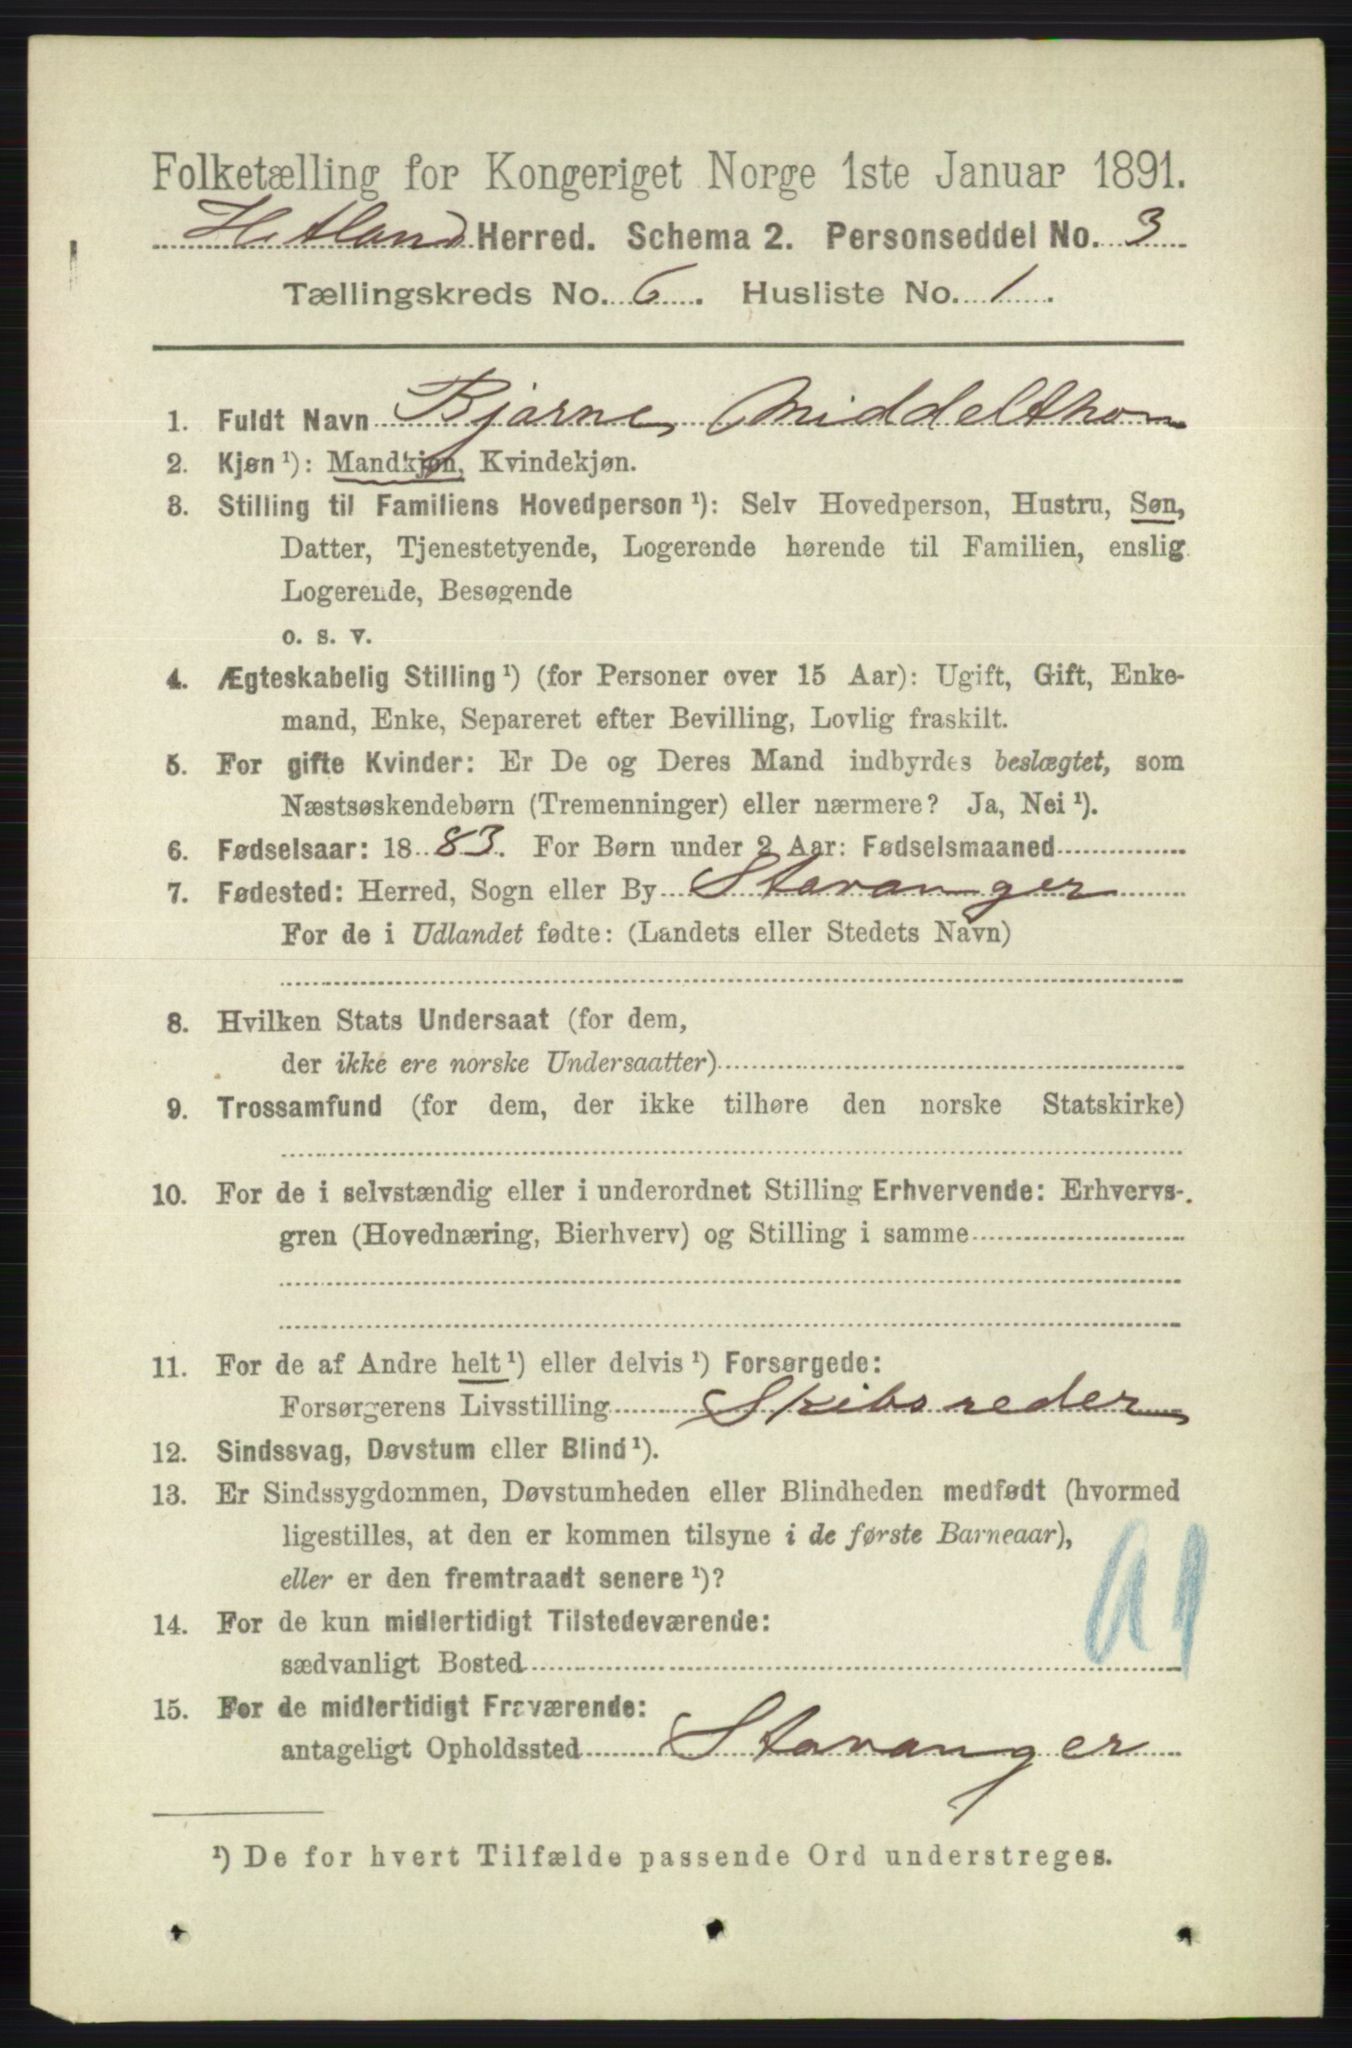 Folketælling for Kongeriget Norge 1ste Januar 1891.
Hetland Herred. Schema 2. Personseddel No. 3
Tællingskreds No. 6. Husliste No. 1.
1. Fuldt Navn Bjarne Middelthon
2. Kjøn ¹): Mandkjøn, Kvindekjøn.
3. Stilling til Familiens Hovedperson ¹): Selv Hovedperson, Hustru, Søn,
Datter, Tjenestetyende, Logerende hørende til Familien, enslig
Logerende, Besøgende
o. s. v.
4. Ægteskabelig Stilling ¹) (for Personer over 15 Aar): Ugift, Gift, Enke-
mand, Enke, Separeret efter Bevilling, Lovlig fraskilt.
5. For gifte Kvinder: Er De og Deres Mand indbyrdes beslægtet, som
Næstsøskendebørn (Tremenninger) eller nærmere? Ja, Nei ¹).
6. Fødselsaar: 1883. For Børn under 2 Aar: Fødselsmaaned
7. Fødested: Herred, Sogn eller By Stavanger
For de i Udlandet fødte: (Landets eller Stedets Navn)
8. Hvilken Stats Undersaat (for dem,
der ikke ere norske Undersaatter)
9. Trossamfund (for dem, der ikke tilhøre den norske Statskirke)
10. For de i selvstændig eller i underordnet Stilling Erhvervende: Erhvervs-
gren (Hovednæring, Bierhverv) og Stilling i samme
11. For de af Andre helt ¹) eller delvis ¹) Forsørgede:
Forsørgerens Livsstilling Skibsreder
12. Sindssvag, Døvstum eller Blind ¹).
13. Er Sindssygdommen, Døvstumheden eller Blindheden medfødt (hvormed
ligestilles, at den er kommen tilsyne i de første Barneaar),
eller er den fremtraadt senere ¹)?
14. For de kun midlertidigt Tilstedeværende:
sædvanligt Bosted
15. For de midlertidigt Fraværende:
antageligt Opholdssted Stavanger
¹) De for hvert Tilfælde passende Ord understreges.